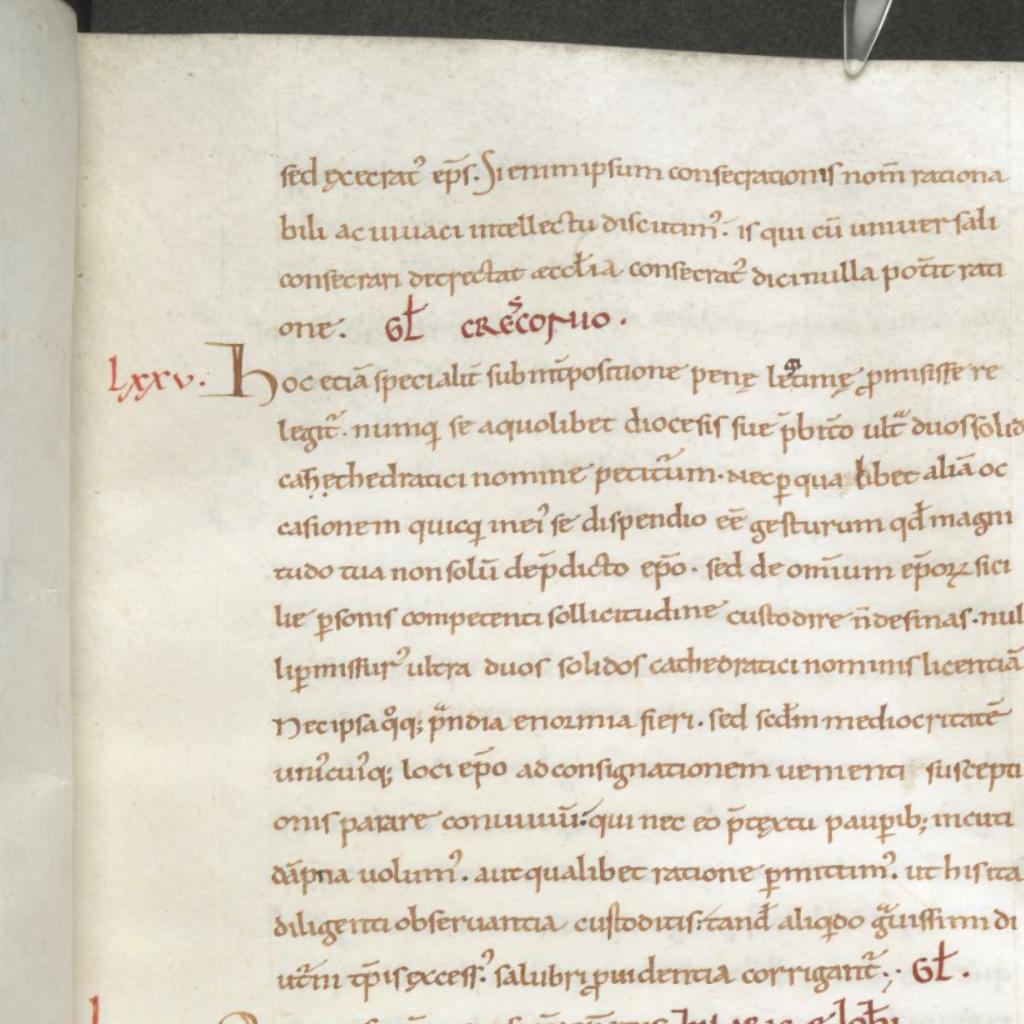 sed execrat' ep̄s. Si enim ipsum consecrationis nom̄ rationa
bili ac uiuaci intellectu discutim'. is qui cū uniuersali
consecrari detrectat æccl̄ia consecrat' dici nulla pot̄it rati
one. Gł
LXXV. Hoc etiā specialit̄ sub int̄positione penę legitimę p̄misisse re
legit̄. numq̄ se a quolibet diocesis sue p̄bit̄o ult̄ duos solid
cathethedratici nomine petitūm. nec p̄ qualibet aliā oc
casionem quicq̄ inei' se dispendio eē gesturum qd̄ magni
tudo tua non solū de p̄dicto ep̄o. sed de omīum ep̄oꝝ sici
lie p̄sonis competenti sollicitudine custodire n̄ desinas. nul
li p̄missur' ultra duos solidos cathedratici nominis licentiā
Nec ipsa q̊q; p̄ndia enormia fieri. sed scd̄m mediocritatē
uni'cui'q; loci ep̄o ad consignationem uenienti suscepti
onis parare conuiuiū: qui nec eo p̄textu paup̄ib; incuti
dāpna uolum'. aut qualibet ratione p̄mittim'. ut his ita
diligenti obseruantia custoditis: tand̄ aliq̄do ḡuissimi di
ut̄ni tp̄is excess' salubri p̄uidentia corrigant̄. Gł.